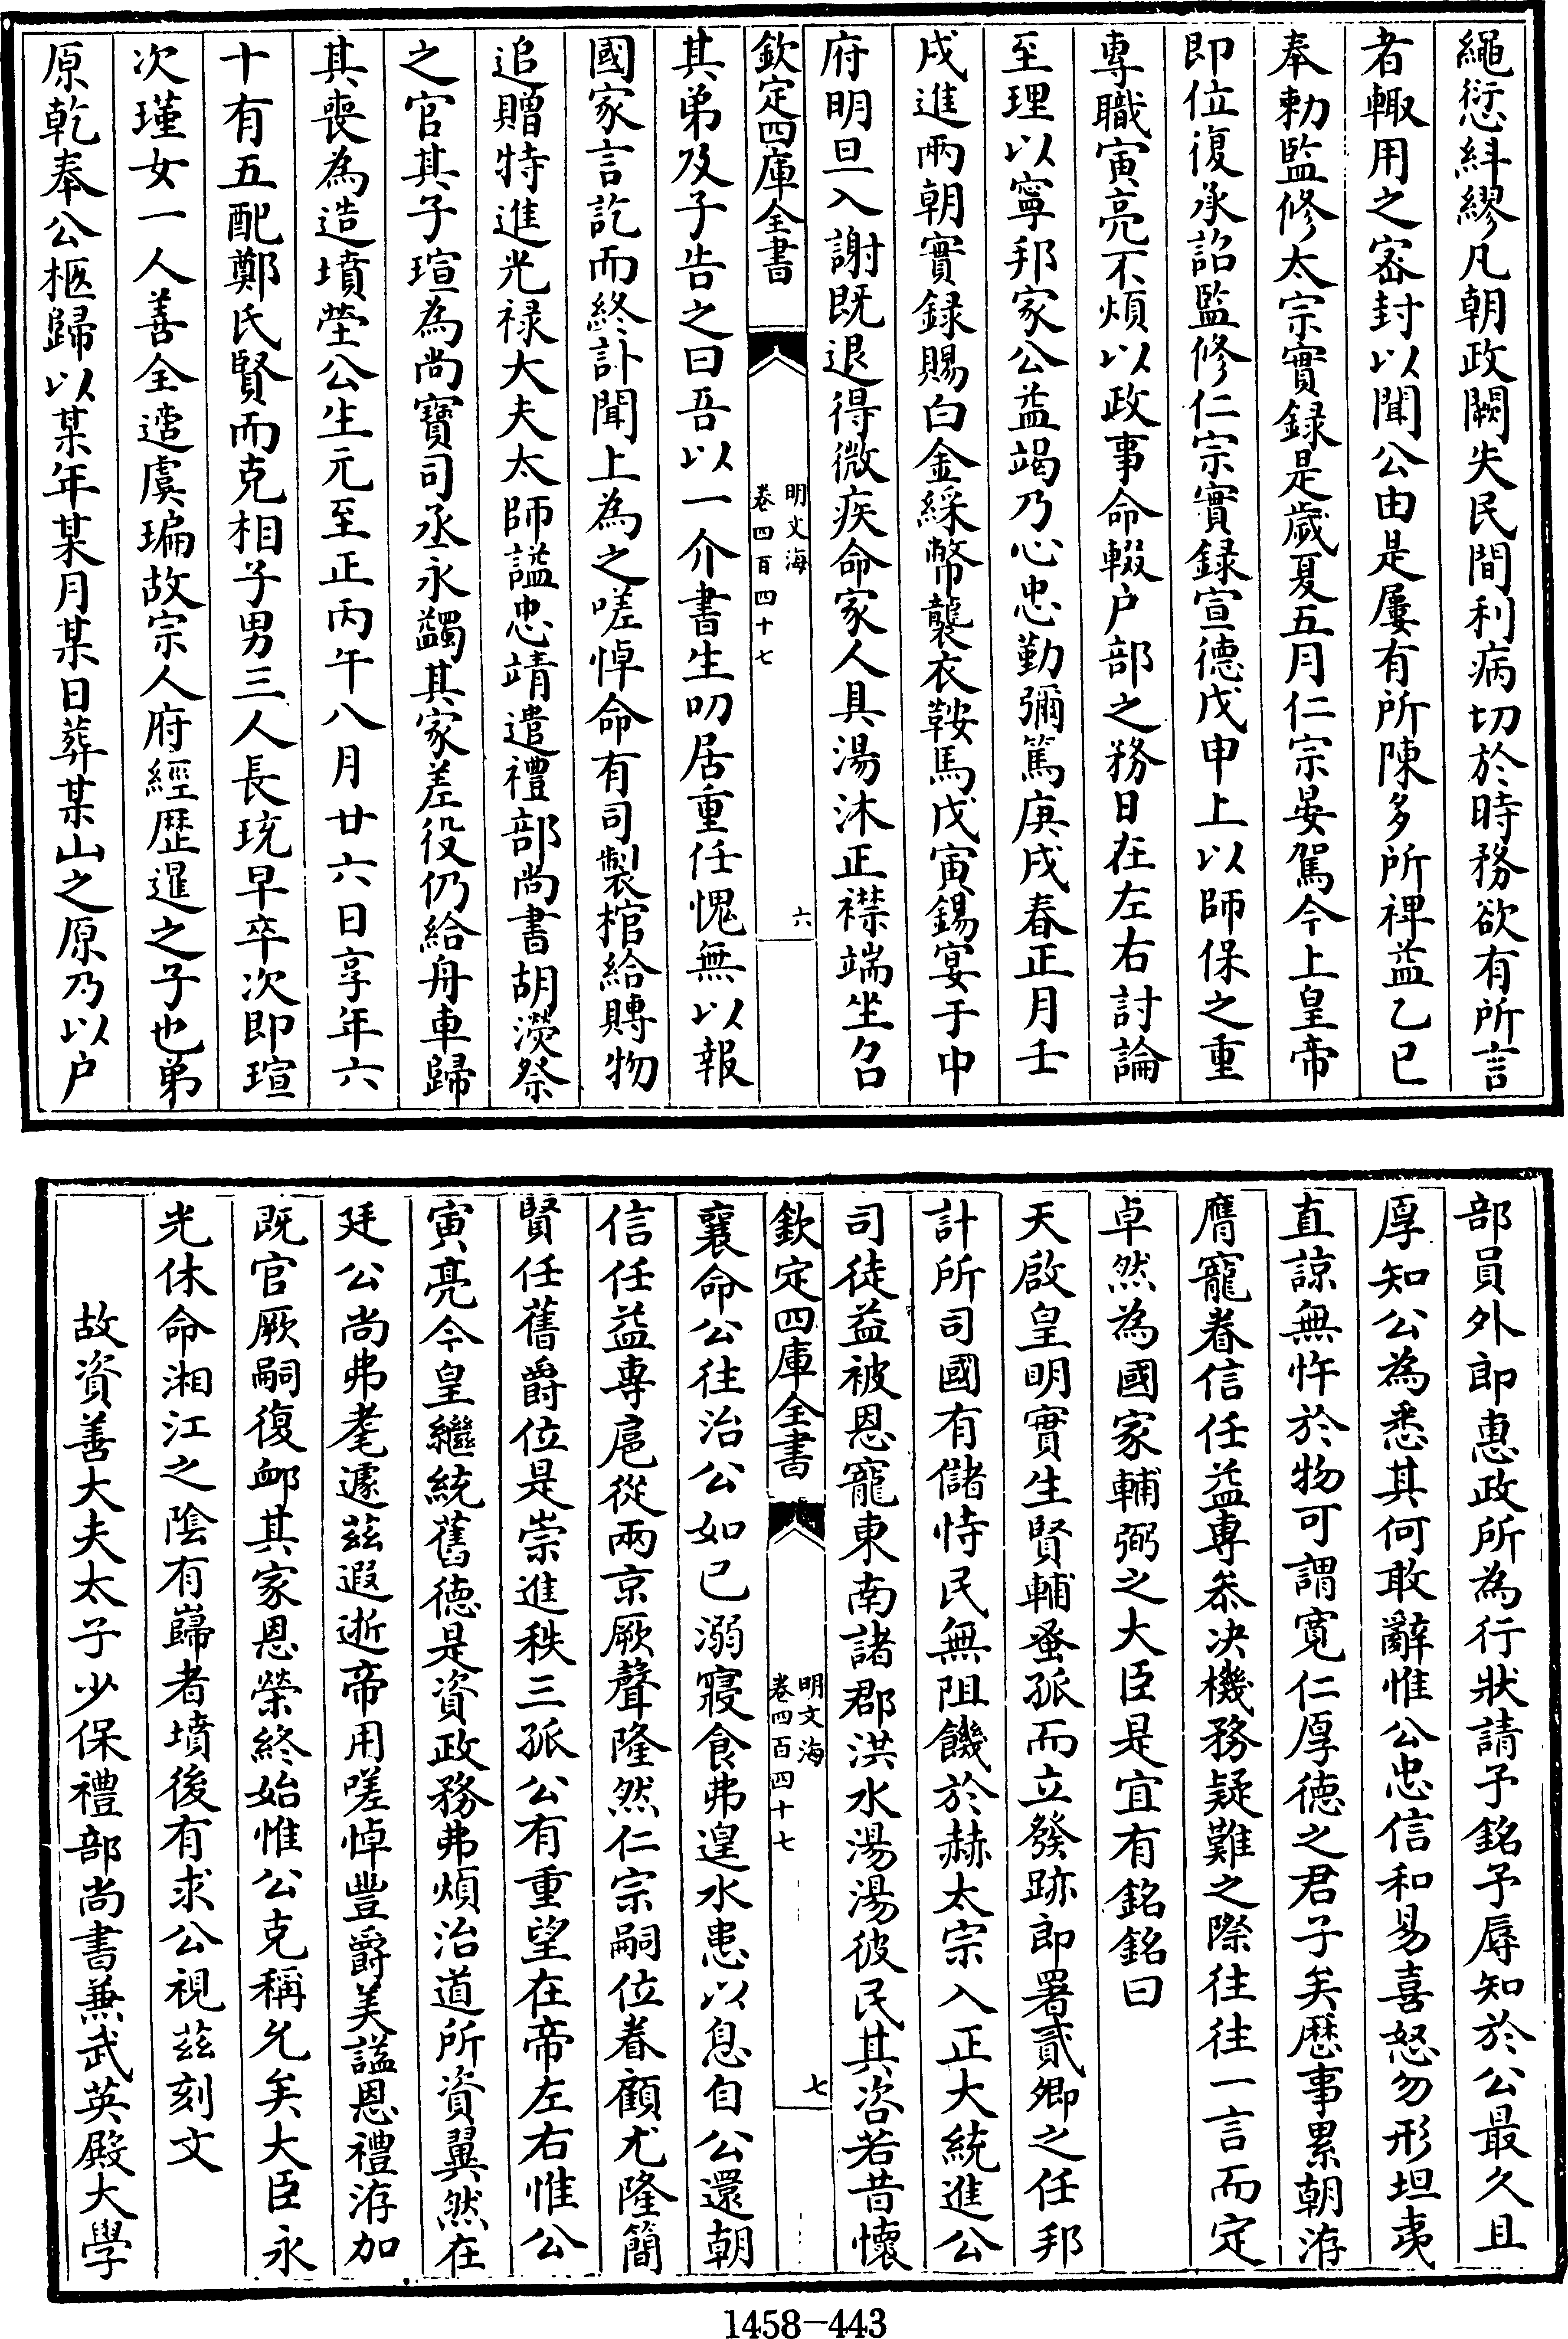 繩愆糾繆凡朝政闕失民間利病切於時務欲有所言
者輙用之密封以聞公由是屢有所陳多所裨益乙巳
奉勅監修太宗實録是歲夏五月仁宗晏駕今上皇帝
即位復承詔監修仁宗實録宣德戊申上以師保之重
專職寅亮不煩以政事命輟户部之務日在左右討論
至理以寧邦家公益竭乃心忠勤彌篤庚戌春正月壬
戌進兩朝實録賜白金綵幣襲衣鞍馬戊寅錫宴于中
府明旦入謝既退得微疾命家人具湯沐正襟端坐召
欽定四庫全書
明文海
卷四百四十七
六
其弟及子告之曰吾以一介書生叨居重任愧無以報
國家言訖而終訃聞上為之嗟悼命有司製棺給賻物
追贈特進光禄大夫太師諡忠靖遣禮部尚書胡濙祭
之官其子瑄為尚寶司丞永蠲其家差役仍給舟車歸
其喪為造墳塋公生元至正丙午八月廿六日享年六
十有五配鄭氏賢而克相子男三人長琉早卒次即瑄
次瑾女一人善全適虞瑞故宗人府經歴暹之子也弟
原乾奉公柩歸以某年某月某日葬某山之原乃以户
部員外郎惠政所為行狀請予銘予辱知於公最久且
厚知公為悉其何敢辭惟公忠信和易喜怒勿形坦夷
直諒無忤於物可謂寛仁厚德之君子矣歴事累朝洊
膺寵眷信任益專叅决機務疑難之際往往一言而定
卓然為國家輔弼之大臣是宜有銘銘曰
天啟皇明實生賢輔蚤孤而立發跡郎署貳卿之任邦
計所司國有儲恃民無阻饑於赫太宗入正大統進公
司徒益被恩寵東南諸郡洪水湯湯彼民其咨若昔懷
欽定四庫全書
明文海
卷四百四十七
七
襄命公往治公如已溺寢食弗遑水患以息自公還朝
信任益專扈從兩京厥聲隆然仁宗嗣位眷顧尤隆簡
賢任舊爵位是崇進秩三孤公有重望在帝左右惟公
寅亮今皇繼統舊德是資政務弗煩治道所資翼然在
廷公尚弗耄遽茲遐逝帝用嗟悼豐爵美諡恩禮洊加
既官厥嗣復䘏其家恩榮終始惟公克稱允矣大臣永
光休命湘江之陰有巋者墳後有求公視茲刻文
故資善大夫太子少保禮部尚書兼武英殿大學
1458-443